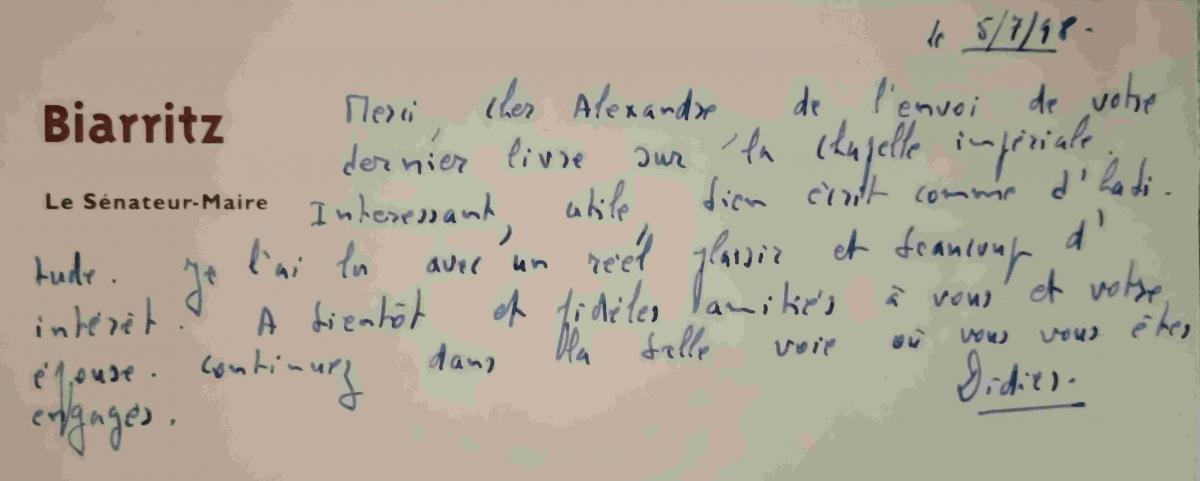 le 5/7/98.
Biarritz
Le Sénateur-Maire
Merci, cher Alexandre de l'envoi de votre
dernier livre sur la chapelle impériale.
Intéressant, utile, bien écrit comme d'habi-
tude. Je l'ai lu avec un réel plaisir et beaucoup d'
intérêt. A bientôt et fidèles amitiés à vous et votre
épouse. Continuez dans la belle voie où vous vous êtes
engagés.
Didier.